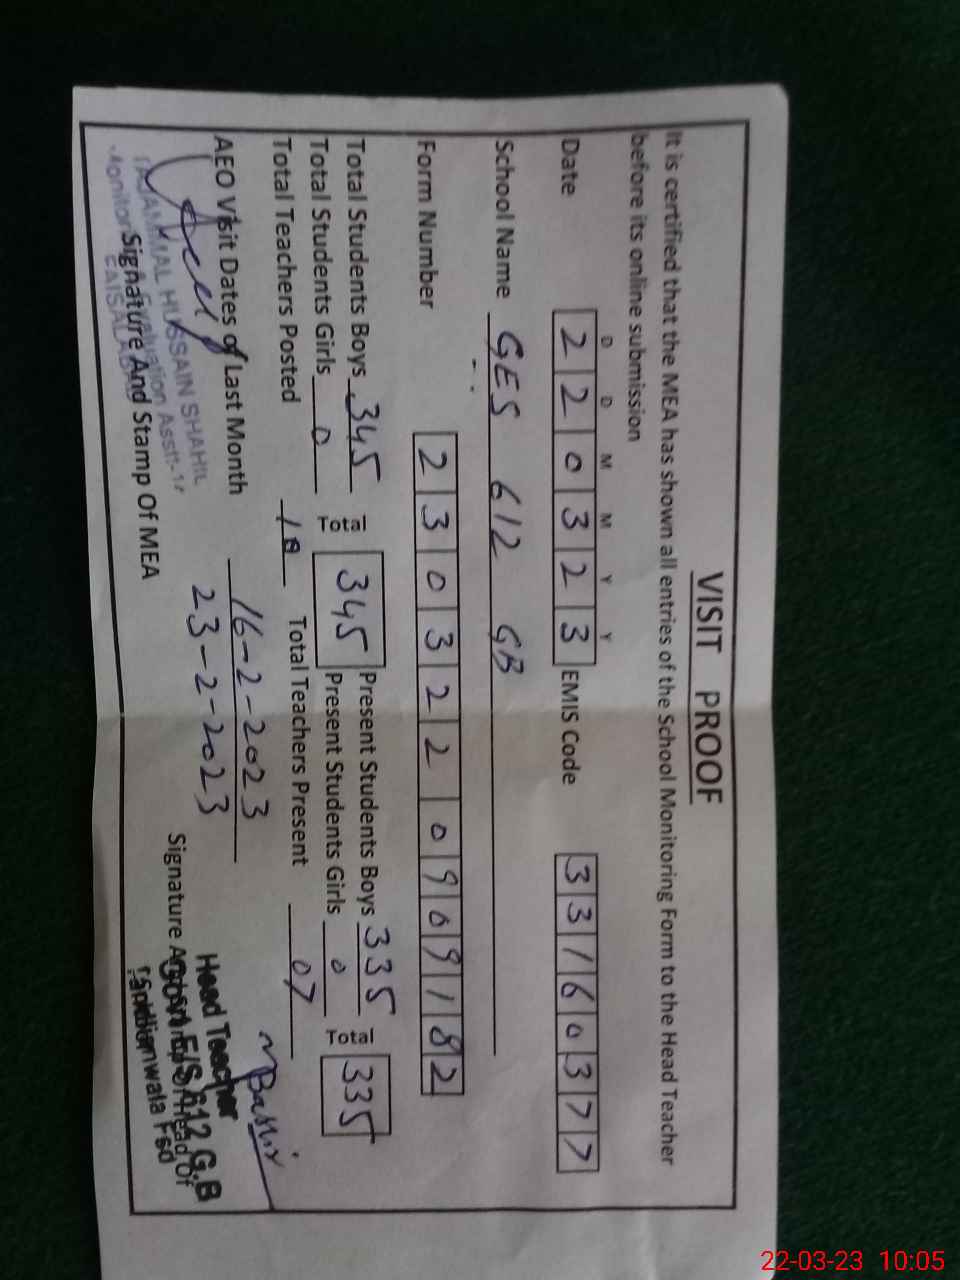 VISIT PROOF
It is certified that the MEA has shown all entries of the School Monitoring Form to the Head Teacher
before its online submission
D D M M Y Y
Date 2 2 0 3 2 3 EMIS Code 3 3 1 6 0 3 7 7
School Name GES 612 GB
Form Number 2 3 0 3 2 2 0 9 0 9 1 8 2
Total Students Boys 345 Total 345 Present Students Boys 335 Total 335
Total Students Girls 0 Present Students Girls 0
Total Teachers Posted Total Teachers Present 07
AEO Visit Dates of Last Month 16-2-2023
23-2-2023
MBashir
TAJAMMAL HUSSAIN SHAHID
Monitoring & Evaluation Asstt:-
FAISALABAD
Signature And Stamp Of MEA
Signature And Stamp Of Head Of
Head Teacher
Govt E/S 612 G.B
22-03-23 10:05